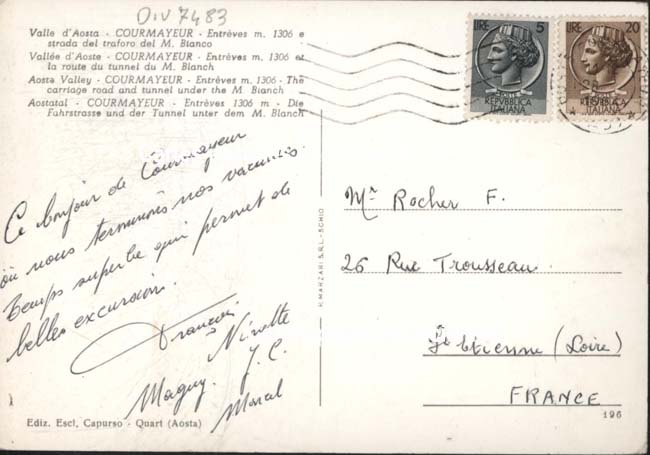 DIV 7483
Valle d'Aosta - COURMAYEUR - Entrèves m. 1306 e
strada del traforo del M. Bianco
Vallée d'Aoste - COURMAYEUR - Entrèves m. 1306 et
la route du tunnel du M. Blanch
Aosta Valley - COURMAYEUR - Entrèves m. 1306 - The
carriage road and tunnel under the M. Bianch
Aostatal - COURMAYEUR - Entrèves 1306 m - Die
Fuhrstrasse und der Tunnel unter dem M. Blanch
LIRE 5
POSTE
REPVBBLICA
ITALIANA
LIRE 20
POSTE
REPVBBLICA
ITALIANA
Ce bonjour de Courmayeur
où nous terminons nos vacances.
Temps superbe qui permet de
belles excursion.
Francis
Ninette
Maguy. J. C.
Marcel
Mr Rocher F.
26 Rue Trousseau.
St Etienne (Loire)
FRANCE
196
Ediz. Escl. Capurso - Quart (Aosta)
MANZARI S.R.L. - SCHIO